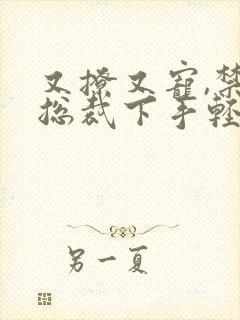 又撩又寵,禁
总裁下手輕
另一夏